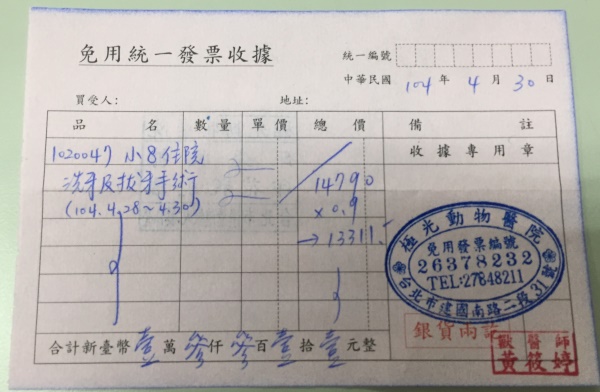 免用統一發票收據
統一編號
中華民國 104 年 4 月 30 日
買受人: 地址:
品名 數量 單價 總價 備註
收據專用章
1020047 小8住院
洗牙及拔牙手術 14790
(104.4.28~4.30) x 0.9
→13311.-
極光動物醫院
免用發票編號
26378232
TEL:27848211
台北市建國南路二段31號
銀貨兩訖
獸醫師
黃筱婷
合計新臺幣 壹 萬 參 仟 參 百 壹 拾 壹 元整